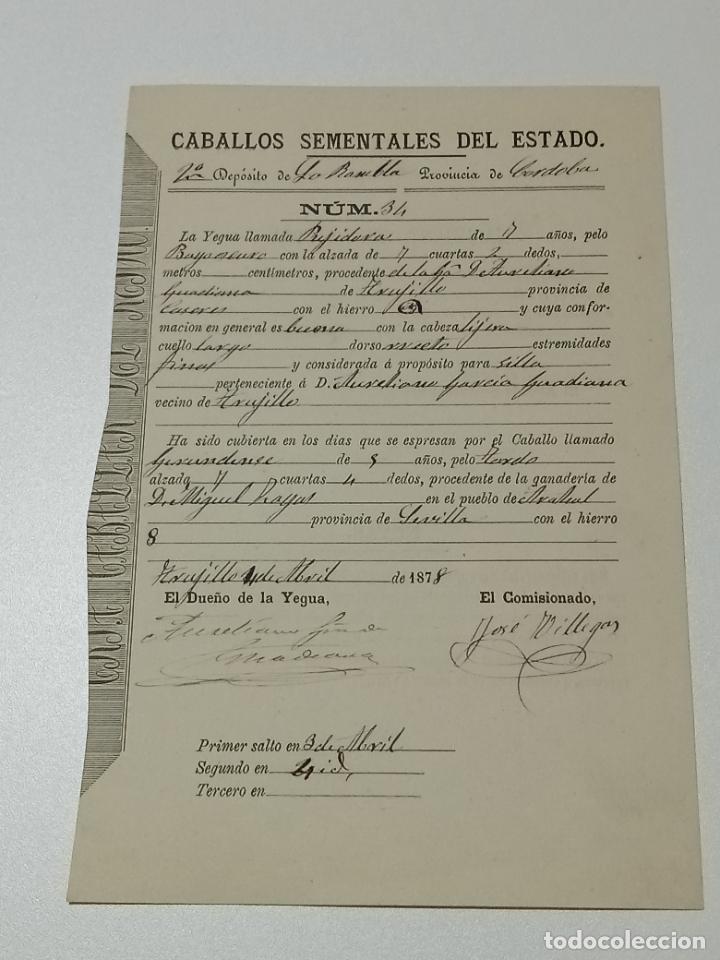 CABALLOS SEMENTALES DEL ESTADO.
Depósito de La Rambla Provincia de Cordoba
NÚM. 34
La Yegua llamada Rejidora de 7 años, pelo
Bayo oscuro con la alzada de 7 cuartas 2 dedos,
metros centímetros, procedente de la ga D. Aureliano
Guadiana de Trujillo provincia de
Caseres con el hierro y cuya confor-
macion en general es buena con la cabeza lijera
cuello largo dorso recto estremidades
finas y considerada á propósito para silla
perteneciente á D. Aureliano García Guadiana
vecino de Trujillo
Ha sido cubierta en los dias que se espresan por el Caballo llamado
Gerundense de 8 años, pelo Tordo
alzada 7 cuartas 4 dedos, procedente de la ganadería de
D. Miguel en el pueblo de Arahal
provincia de Sevilla con el hierro
8
Trujillo 4 de Abril de 1878
El Dueño de la Yegua, El Comisionado,
Aureliano José Villegas
Guadiana
Primer salto en 3 de Abril
Segundo en 4 id,
Tercero en
todocoleccion